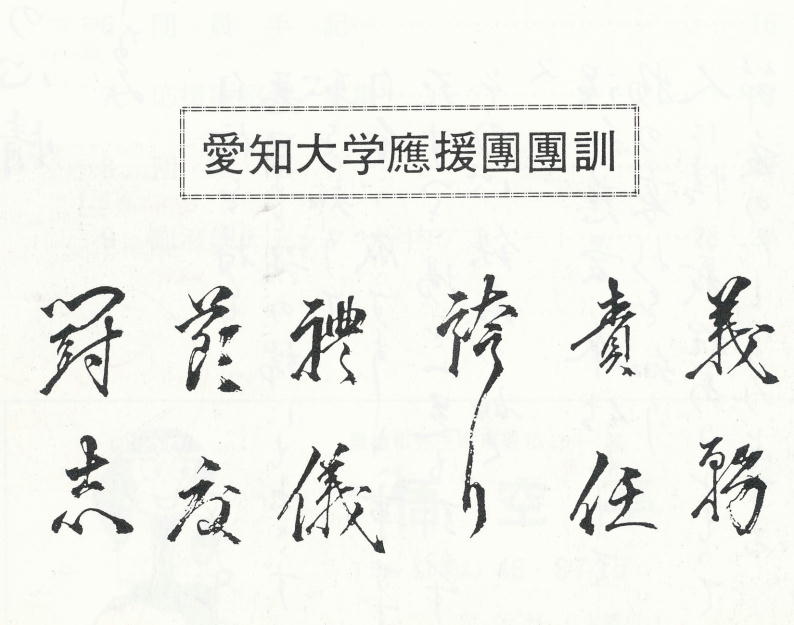 愛知大学應援團團訓
義務
責任
誇り
禮儀
節度
闘志